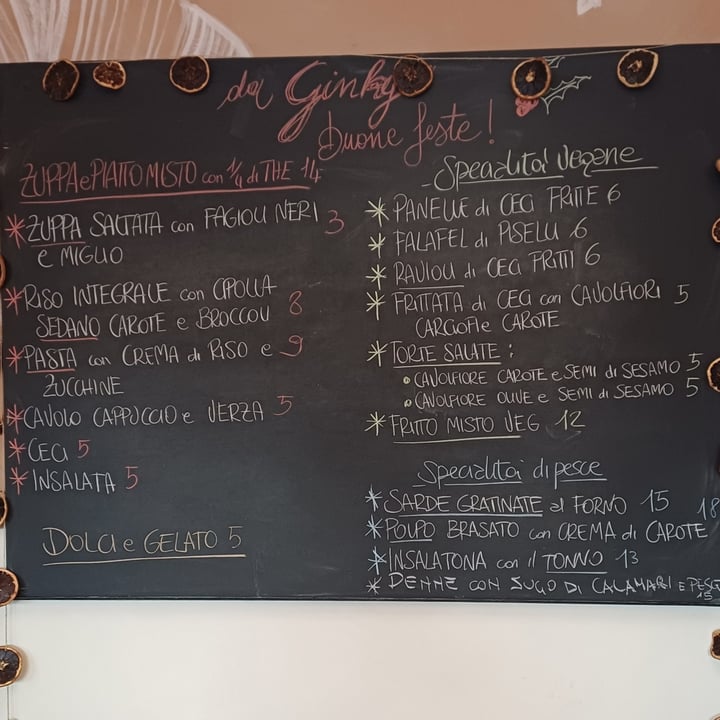 da Ginkgo
Buone feste!
ZUPPA e PIATTO MISTO con 1/4 di THE 14
* ZUPPA SALTATA con FAGIOLI NERI 3
e MIGLIO
* RISO INTEGRALE con CIPOLLA
SEDANO CAROTE e BROCCOLI 8
* PASTA con CREMA di RISO e 9
ZUCCHINE
* CAVOLO CAPPUCCIO e VERZA 5
* CECI 5
* INSALATA 5
DOLCI e GELATO 5
Specialità Vegane
* PANELLE di CECI FRITTE 6
* FALAFEL di PISELLI 6
* RAVIOLI di CECI FRITTI 6
* FRITTATA di CECI con CAVOLFIORI 5
CARCIOFI e CAROTE
* TORTE SALATE :
• CAVOLFIORE CAROTE e SEMI di SESAMO 5
• CAVOLFIORE OLIVE e SEMI di SESAMO 5
* FRITTO MISTO VEG 12
Specialità di pesce
* SARDE GRATINATE al FORNO 15
* POLPO BRASATO con CREMA di CAROTE 18
* INSALATONA con il TONNO 13
* PENNE CON SUGO DI CALAMARI E PESCE
15